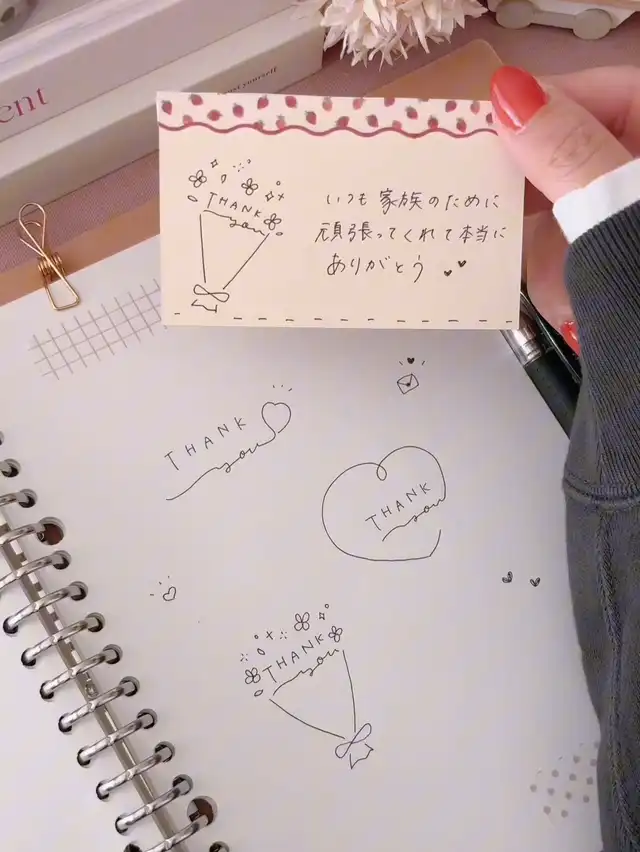 ent
yourself
THANK
you
いつも 家族のために
頑張ってくれて本当に
ありがとう
THANK
you
THANK
you
THANK
you